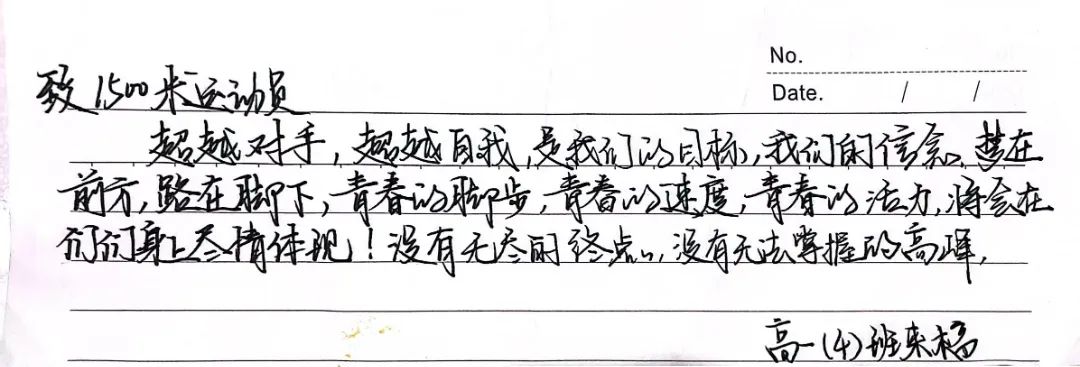 No.
Date. / /
致1500米运动员
超越对手，超越自我，是我们的目标，我们的信念。梦在
前方，路在脚下，青春的脚步，青春的速度，青春的活力，将会在
们身上尽情体现！没有无尽的终点，没有无法掌握的高峰，
高一(4)班来福